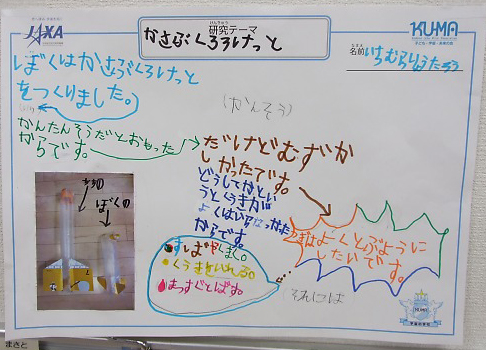 JAXA
研究テーマ
けんきゅう
かさぶくろろけっと
KUMA
子ども・宇宙・未来の会
名前
なまえ
いちむらりょうたろう
ぼくはかさぶくろろけっと
をつくりました。
(かんそう)
かんたんそうだとおもった
からです。
だけどむずか
しかったです。
どうしてかとい
うとくうきが
よくはいらなかった
からです。
ぼくの
すばやくしばく。
くうきをいれる。
まっすぐとばす。
つぎはよーくとぶよーうに
したいです。
それには
KUMA
まさと